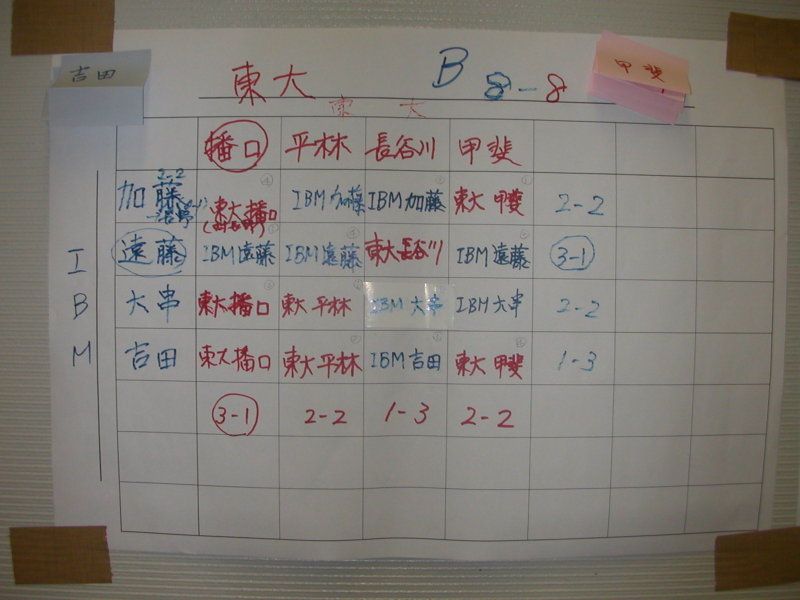 吉田
東大 B 8-8
甲斐
東大
播口 平林 長谷川 甲斐
2-2
加藤 東大播口 IBM加藤 IBM加藤 東大甲斐 2-2
遠藤 IBM遠藤 IBM遠藤 東大長谷川 IBM遠藤 3-1
大串 東大播口 東大平林 IBM大串 IBM大串 2-2
吉田 東大播口 東大平林 IBM吉田 東大甲斐 1-3
3-1 2-2 1-3 2-2
IBM